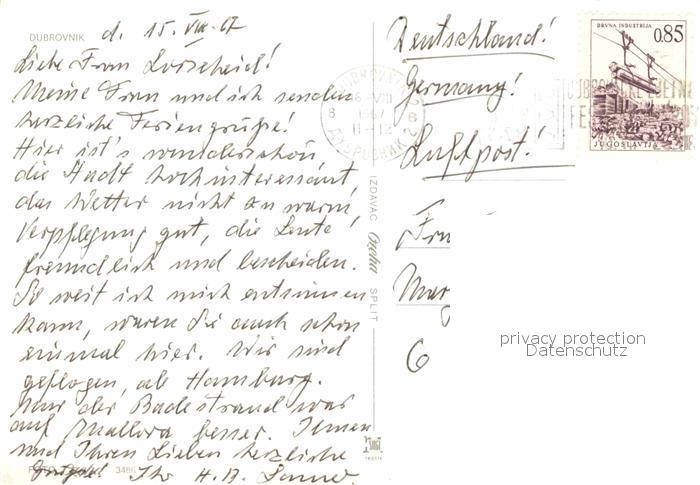 DUBROVNIK d. 15. VIII. 67
Liebe Frau Lorscheid!
Meine Frau und ich senden
herzliche Feriengrüße!
Hier ist's wunderschön,
die Stadt hochinteressant,
das Wetter nicht zu warm,
Verpflegung gut, die Leute
freundlich und bescheiden.
So weit ich mich entsinnen
kann, waren Sie auch schon
einmal hier. Wir sind
geflogen, ab Hamburg.
Nur der Badestrand war
auf Mallorca besser. Ihnen
und Ihren Lieben herzliche
Ihr H. B.
3486
IZDAVAČ SPLIT
Deutschland!
Germany!
Luftpost!
DRVNA INDUSTRIJA
0.85
JUGOSLAVIJA
1967
ДУБРОВНИК 2
6
privacy protection
Datenschutz